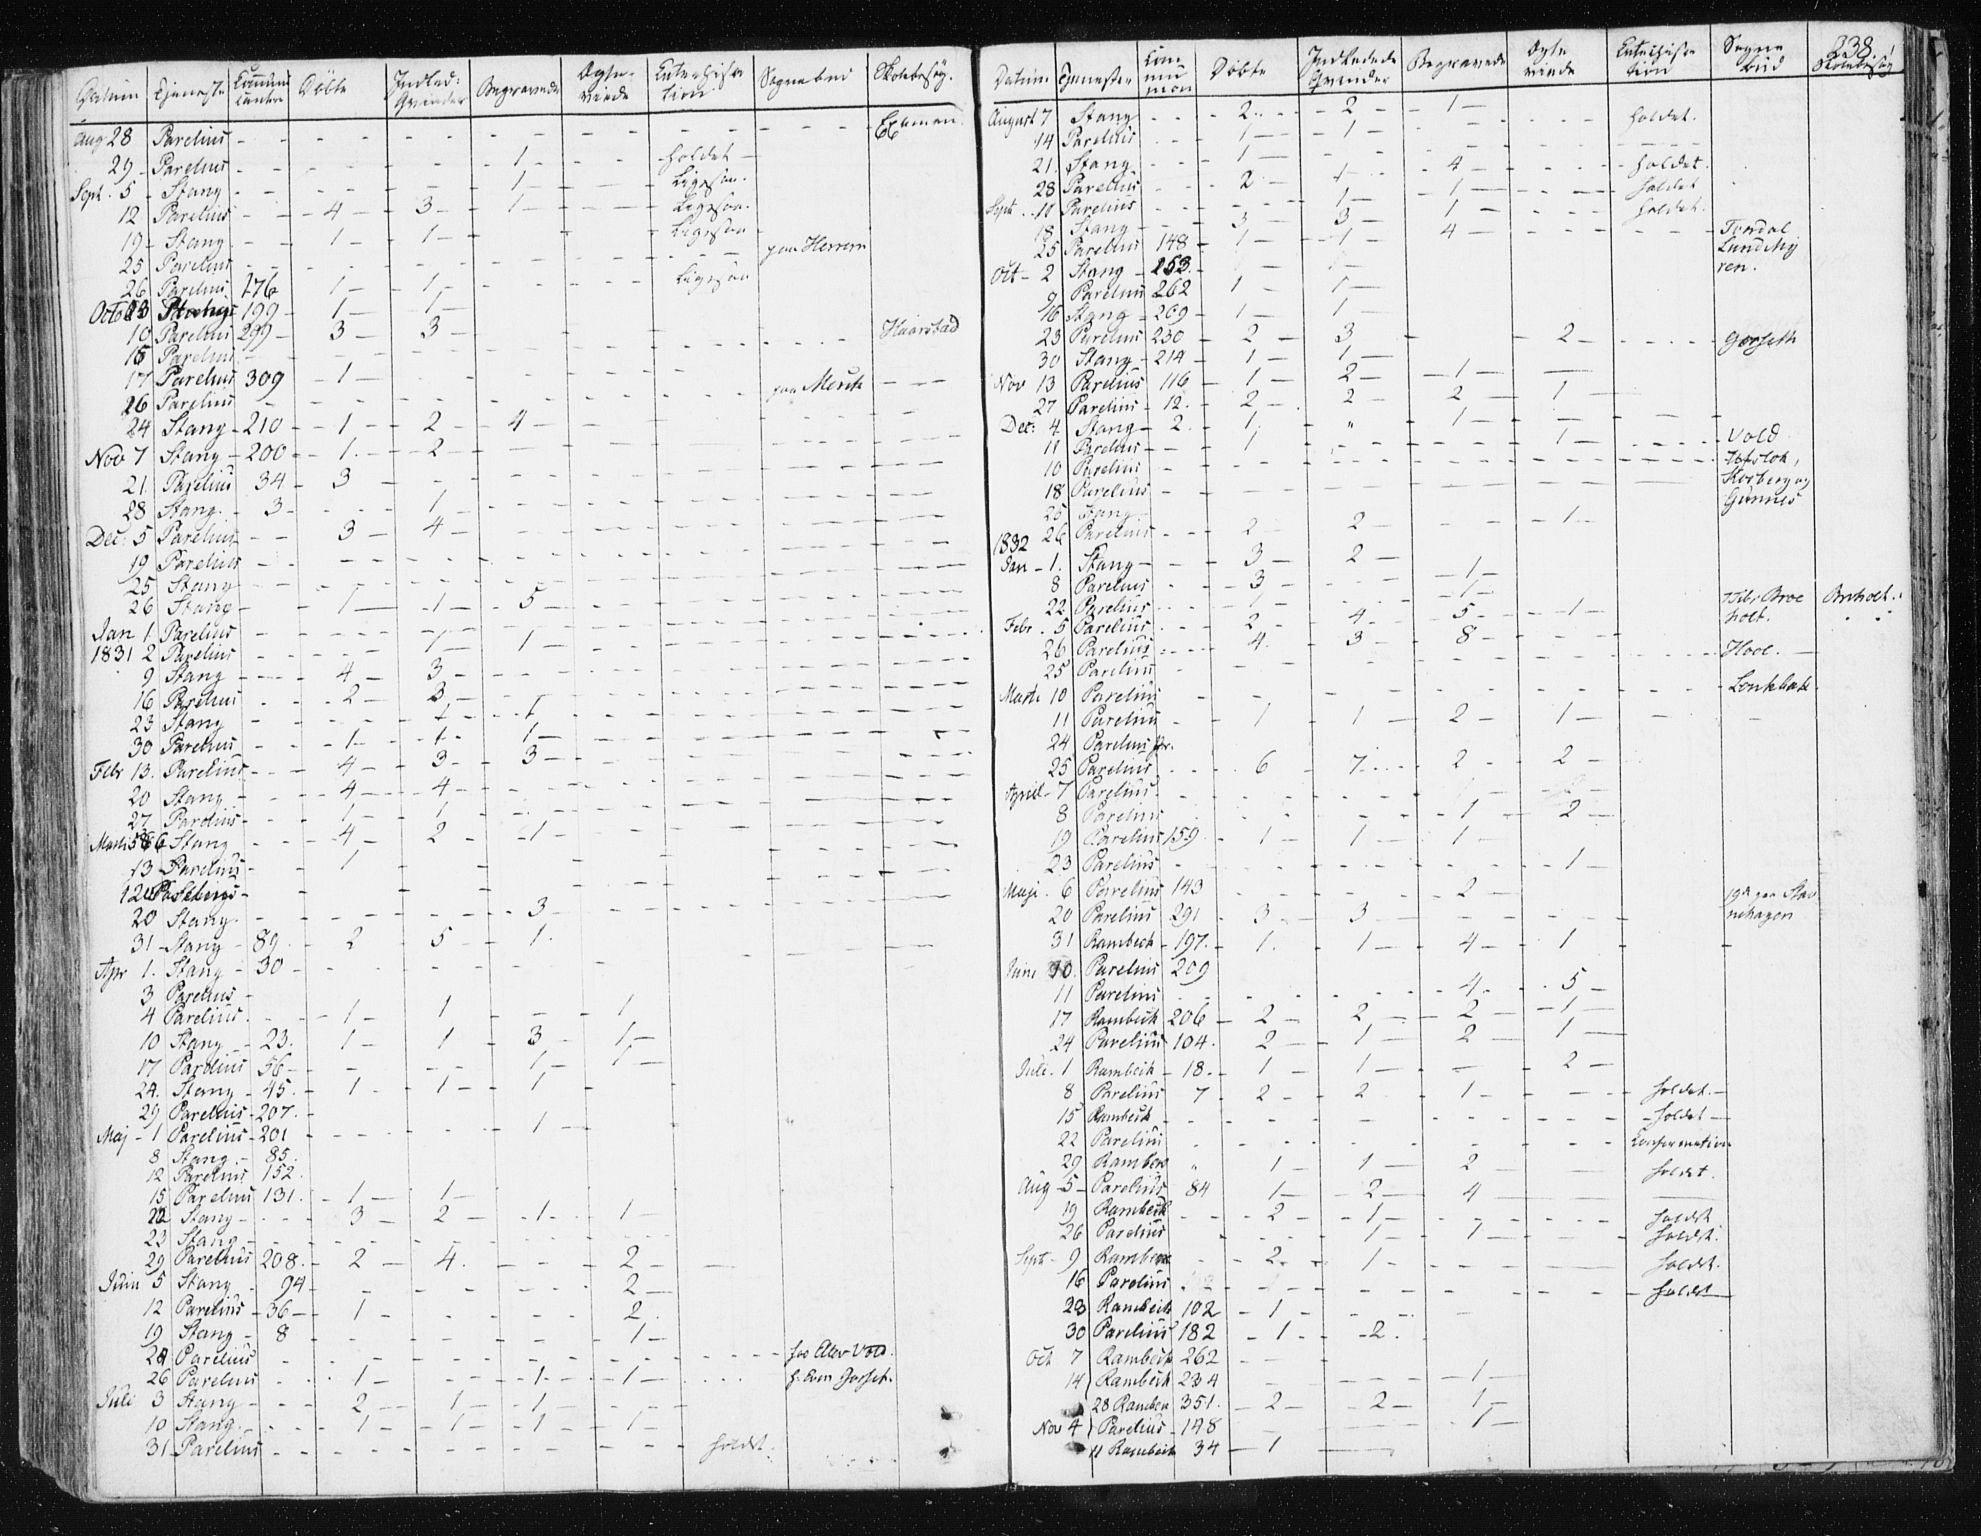 Datum Tjeneste Communi- Døbte Indled: Begravede Ægte- Catechisa- Sognebud Skolebesøg.
cantere Qvinder viede tion
Aug 28 Parelius - - - - - - - - Examen.
29 - Parelius - - - - 1 - - holdet -
Sept. 5 - Stang - - - - 1 - - Ligesaa.
12 Parelius - - 4 - 3 - 1 - - Ligesaa.
19 - Stang - - 1 - 1 - - Ligesaa
25 Parelius - - - - - - paa Herrem
26 Parelius 176 1 - 1 - - Ligesaa
Octob 3 199 - 1 - 1 -
10 Parelius 299 - 3 - 3 -
15 Parelius - - - - - - - Haarstad
17 Parelius 309 - 1 - - -
16 Parelius - - - - - - paa Merch - - -
24 Stang - 210 - 1 - 2 - 4 -
Nov 7 Stang - 200 - 1 - 2 -
21. Parelius 34 - 3 - -
28 Stang. - 3 - - - 1 -
Dec. 5 Parelius - - 3 - 4 -
19 Parelius - - - - -
25 Stang - - - - -
26 Stang - - 1 - 1 - 5 -
Jan 1. Parelius - - - -
1831 2 Parelius - - - 1 - 1 -
9 Stang - - - 4 - 3 - - -
16 Parelius - - 2 - 3 - - -
23 Stang - - - 1 - 1 -
30 Parelius - - 1 - 1 - 1 -
Febr 13. Parelius - - - 4 - 3 - 3 -
20 Stang - - 4 - 4 -
27 Parelius - - 1 - 1 -
Marti 6 Stang - - 4 - 2 - 1 -
13 Parelius - - 1 -
20 Stang. - - - - 3 -
31 - Stang - 89 - 2 - 5 - 1.
Apr 1. Stang - 30 -
3 Parelius -
4 Parelius. - - 1 - 1 - - 1 -
10 Stang - 23. - 1 - 1 3 - 1 -
17 Parelius 56 - - - 1 - 1 -
24. Stang - 45. - 1 - 1 - 1 -
29 Parelius - 207. -
Maj - 1 Parelius - 201 - - - 1 -
8 Stang. - 85.
12 Parelius 152.
15 Parelius 131. - 1 - 1 -
22 Stang - - - 3 - 2 - 1. 1 -
23 Stang - - - -
29 Parelius 208. - 2 - 4. - - 2 -
Juni 5 Stang - 94 - - - - 2 -
12 Parelius - 36 - - 1 - - - 2.
19 Stang - 8 - - - - 1 -
24 Parelius - - - - - - - hos Elev Vold.
26 Parelius - - 1 - - 1 - 1 -
Juli 3 Stang - - - 2 - 1 - 1 -
10 Stang. - - 1 - 1 - 1 - 1 -
31 - Parelius - - - - - - holdet.
238.
Datum Tjeneste Com- Døbte Indledede Begravede Ægte Catechisa Sogne Skolebesøg
mu- Qvinder viede tion bud
nion
August 7 Stang - - - 2 - 2 - 1 - - holdet.
14 Parelius - - - 1 - 1 -
21. Stang - - 1 - - 4 - - holdet.
28 Parelius - - 2 - 1 - 1 - - - holdet
Sept. 10 Parelius - - - 1 - 1 - - - holdet.
18 Stang - - 3 - 3 - 4 -
25 Parelius 148 - 1 - 1 -
Oct - 2 Stang - 253. - 1 - 1 -
9 Parelius 262 1 - 1 -
16 Stang - 269 - 1 - 1
23 Parelius 230 - 2 - 3 - - 2 - - - Gorseth
30 Stang - 214 - 1 - 1 -
Nov 13 Parelius 116 - 1 - 2 - 1 -
27 Parelius - 12. - 2 - 2 - 2 - 1 -
Dec: 4. Stang - 2. - 1 - " - 1 -
11 Parelius - - 1 - - - 1 - - Vold
10 Parelius - - - - - - -
18 Parelius - - - - - Gunnes
25 Stang -
26 Parelius - - 2 - 2 - - 1 -
1832
Jan - 1. Stang - - 3 - 2 -
8 Parelius - - 3 - - 1 -
22 Parelius - - 1 - - 1 -
Febr. 5 Parelius - - 2 - 4 - 5 - 1 -
26 Parelius - - 4. - 3 - 8 -
25 Parelius - - - - - - Hooe. -
Marti 10 Parelius - - - - - -
11 Parelius - - 1 - 1 - 2 - 1 - -
24 Parelius
25 Parelius - - 6 - 7 - 2 - 2 -
April - 7 Parelius - - - -
8 Parelius - - - - 1 - 2 -
19 Parelius 159. - 1 - 1 - 1 -
23 Parelius - - - - - 1 -
Maji. 6 Parelius 143 - - - 2 -
20 Parelius 291 - 3 - 3 - - -
31 Rambech - 197. - 1. - 1 - 4 - 1
Juni 10. Parelius 209
11 Parelius - - - - 4 - 5 -
17 Rambech 206 - 2 - 2 - 2 - 1 -
24 Parelius 104. - 2 - 1 - 2 - 1 -
Juli. 1 Rambech - 18. - 1 - 1 - - 2 -
8 Parelius 7 - 2 - 2 - 1 - - holdet. -
15 Rambech - - - - - holdet -
22 Parelius - - - - - Confirmation
29 Rambech " 1 - 1 - 2 - - holdet.
Aug - 5 - Parelius 84 1 - 2 - 4 -
19 Rambech - - 2 - 1 - - - holdet
26 Parelius - - - 1 - 1 - - holdet.
Sept - 9 Rambech - - 2 - 1 - - - holdet.
16 Parelius - - - - - - holdet -
23 Rambech 102 - 1 - - -
30 Parelius 182 - 1 - 2.
Oct 7 Rambech 262 - -
14 Rambech 234 - - - 1 -
28 Rambech 351. - 2 - 2 - 1 -
Nov 4 Parelius - 148 - - - 1 -
11 Rambech 34 - 1 -